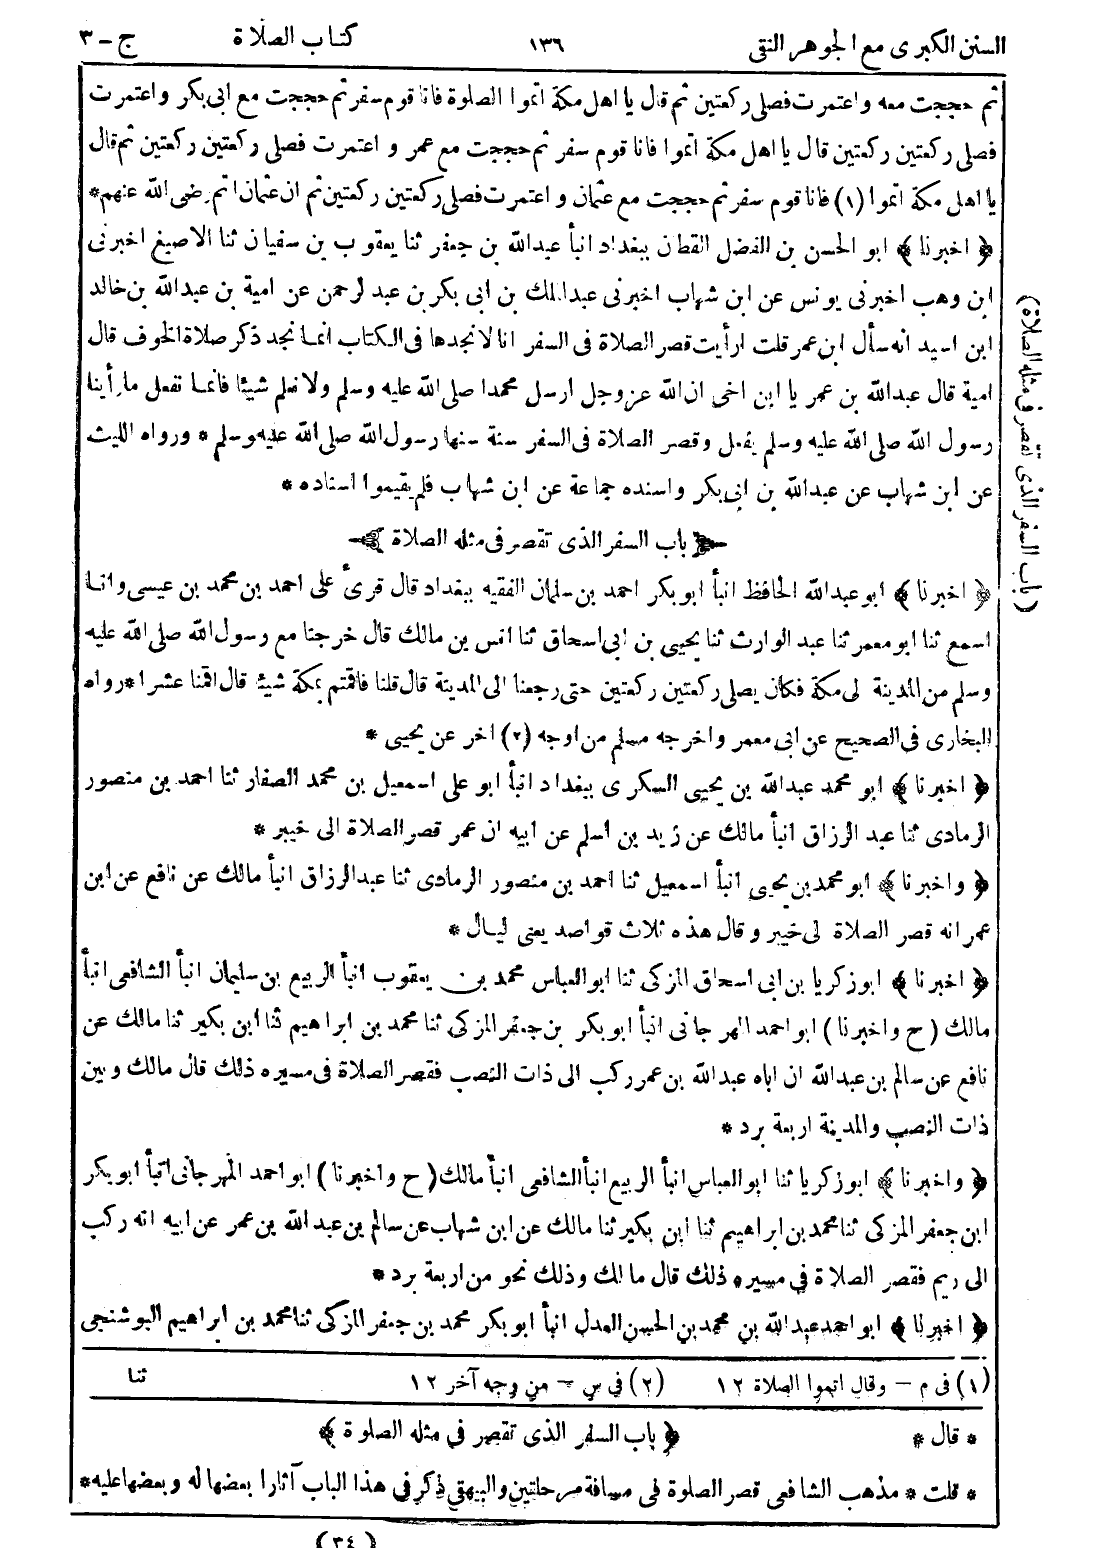 السنن الكبرى مع الجوهر النقى ١٣٦ كتاب الصلاة ج-٣
ثم حججت معه واعتمرت فصلى ركعتين ثم قال يا اهل مكة اتموا الصلوة فانا قوم سفر ثم حججت مع ابى بكر واعتمرت
فصلى ركعتين ركعتين قال يا اهل مكة اتموا فانا قوم سفر ثم حججت مع عمر و اعتمرت فصلى ركعتين ركعتين ثم قال
يا اهل مكة اتموا (١) فانا قوم سفر ثم حججت مع عثمان و اعتمرت فصلى ركعتين ركعتين ثم ان عثمان اتم رضى الله عنهم*
﴿ اخبرنا ﴾ ابو الحسن بن الفضل القطان ببغداد انبأ عبدالله بن جعفر ثنا يعقوب بن سفيان ثنا الاصبغ اخبرنى
ابن وهب اخبرنى يونس عن ابن شهاب اخبرنى عبدالملك بن ابى بكر بن عبد لرحمن عن امية بن عبدالله بن خالد
ابن اسيد انه سأل ابن عمر قلت ارأيت قصر الصلاة فى السفر انا لا نجدها فى الكتاب انما نجد ذكر صلاة الخوف قال
امية قال عبدالله بن عمر يا ابن اخى ان الله عزوجل ارسل محمدا صلى الله عليه وسلم ولا نعلم شيئا فانما نفعل ما رأينا
رسول الله صلى الله عليه وسلم يفعل وقصر الصلاة فى السفر سنة سنها رسول الله صلى الله عليه وسلم * ورواه الليث
عن ابن شهاب عن عبدالله بن ابى بكر واسنده جماعة عن ابن شهاب فلم يقيموا اسناده *
﴿ باب السفر الذى تقصر فى مثله الصلاة ﴾
﴿ اخبرنا ﴾ ابو عبدالله الحافظ انبأ ابو بكر احمد بن سلمان الفقيه ببغداد قال قرئ على احمد بن محمد بن عيسى وانا
اسمع ثنا ابو معمر ثنا عبد الوارث ثنا يحيى بن ابى اسحاق ثنا انس بن مالك قال خرجنا مع رسول الله صلى الله عليه
وسلم من المدينة لى مكة فكان يصلى ركعتين ركعتين حتى رجعنا الى المدينة قال قلنا فاقمتم بمكة شيئا قال اقمنا عشرا * رواه
البخارى فى الصحيح عن ابى معمر واخرجه مسلم من اوجه (٢) اخر عن يحيى *
﴿ اخبرنا ﴾ ابو محمد عبدالله بن يحيى السكرى ببغداد انبأ ابو على اسمعيل بن محمد الصفار ثنا احمد بن منصور
الرمادى ثنا عبد الرزاق انبأ مالك عن زيد بن اسلم عن ابيه ان عمر قصر الصلاة الى خيبر *
﴿ واخبرنا ﴾ ابو محمد بن يحيى انبأ اسمعيل ثنا احمد بن منصور الرمادى ثنا عبدالرزاق انبأ مالك عن نافع عن ابن
عمر انه قصر الصلاة لى خيبر وقال هذه ثلاث قواصد يعنى ليال *
﴿ اخبرنا ﴾ ابو زكريا بن ابى اسحاق المزكى ثنا ابو العباس محمد بن يعقوب انبأ الربيع بن سليمان انبأ الشافعى انبأ
مالك (ح واخبرنا) ابو احمد المهرجانى انبأ ابو بكر بن جعفر المزكى ثنا محمد بن ابراهيم ثنا ابن بكير ثنا مالك عن
نافع عن سالم بن عبدالله ان اباه عبدالله بن عمر ركب الى ذات النصب فقصر الصلاة فى مسيره ذلك قال مالك وبين
ذات النصب والمدينة اربعة برد *
﴿ واخبرنا ﴾ ابو زكريا ثنا ابو العباس انبأ الربيع انبأ الشافعى انبأ مالك (ح واخبرنا) ابو احمد المهرجانى انبأ ابو بكر
ابن جعفر المزكى ثنا محمد بن ابراهيم ثنا ابن بكير ثنا مالك عن ابن شهاب عن سالم بن عبد الله بن عمر عن ابيه انه ركب
الى ريم فقصر الصلاة فى مسيره ذلك قال مالك وذلك نحو من اربعة برد *
﴿ اخبرنا ﴾ ابو احمد عبدالله بن محمد بن الحسن العدل انبأ ابو بكر محمد بن جعفر المزكى ثنا محمد بن ابراهيم البوشنجى
ثنا
(١) فى م - وقال اتموا الصلاة ١٢ (٢) فى س - من وجه آخر ١٢
* قال * ﴿ باب السفر الذى تقصر فى مثله الصلوة ﴾
* قلت * مذهب الشافعى قصر الصلوة فى مسافة مرحلتين والبيهقى ذكر فى هذا الباب آثارا بعضها له وبعضها عليه *
(٣٤)
(باب السفر الذى تقصر فى مثله الصلاة)